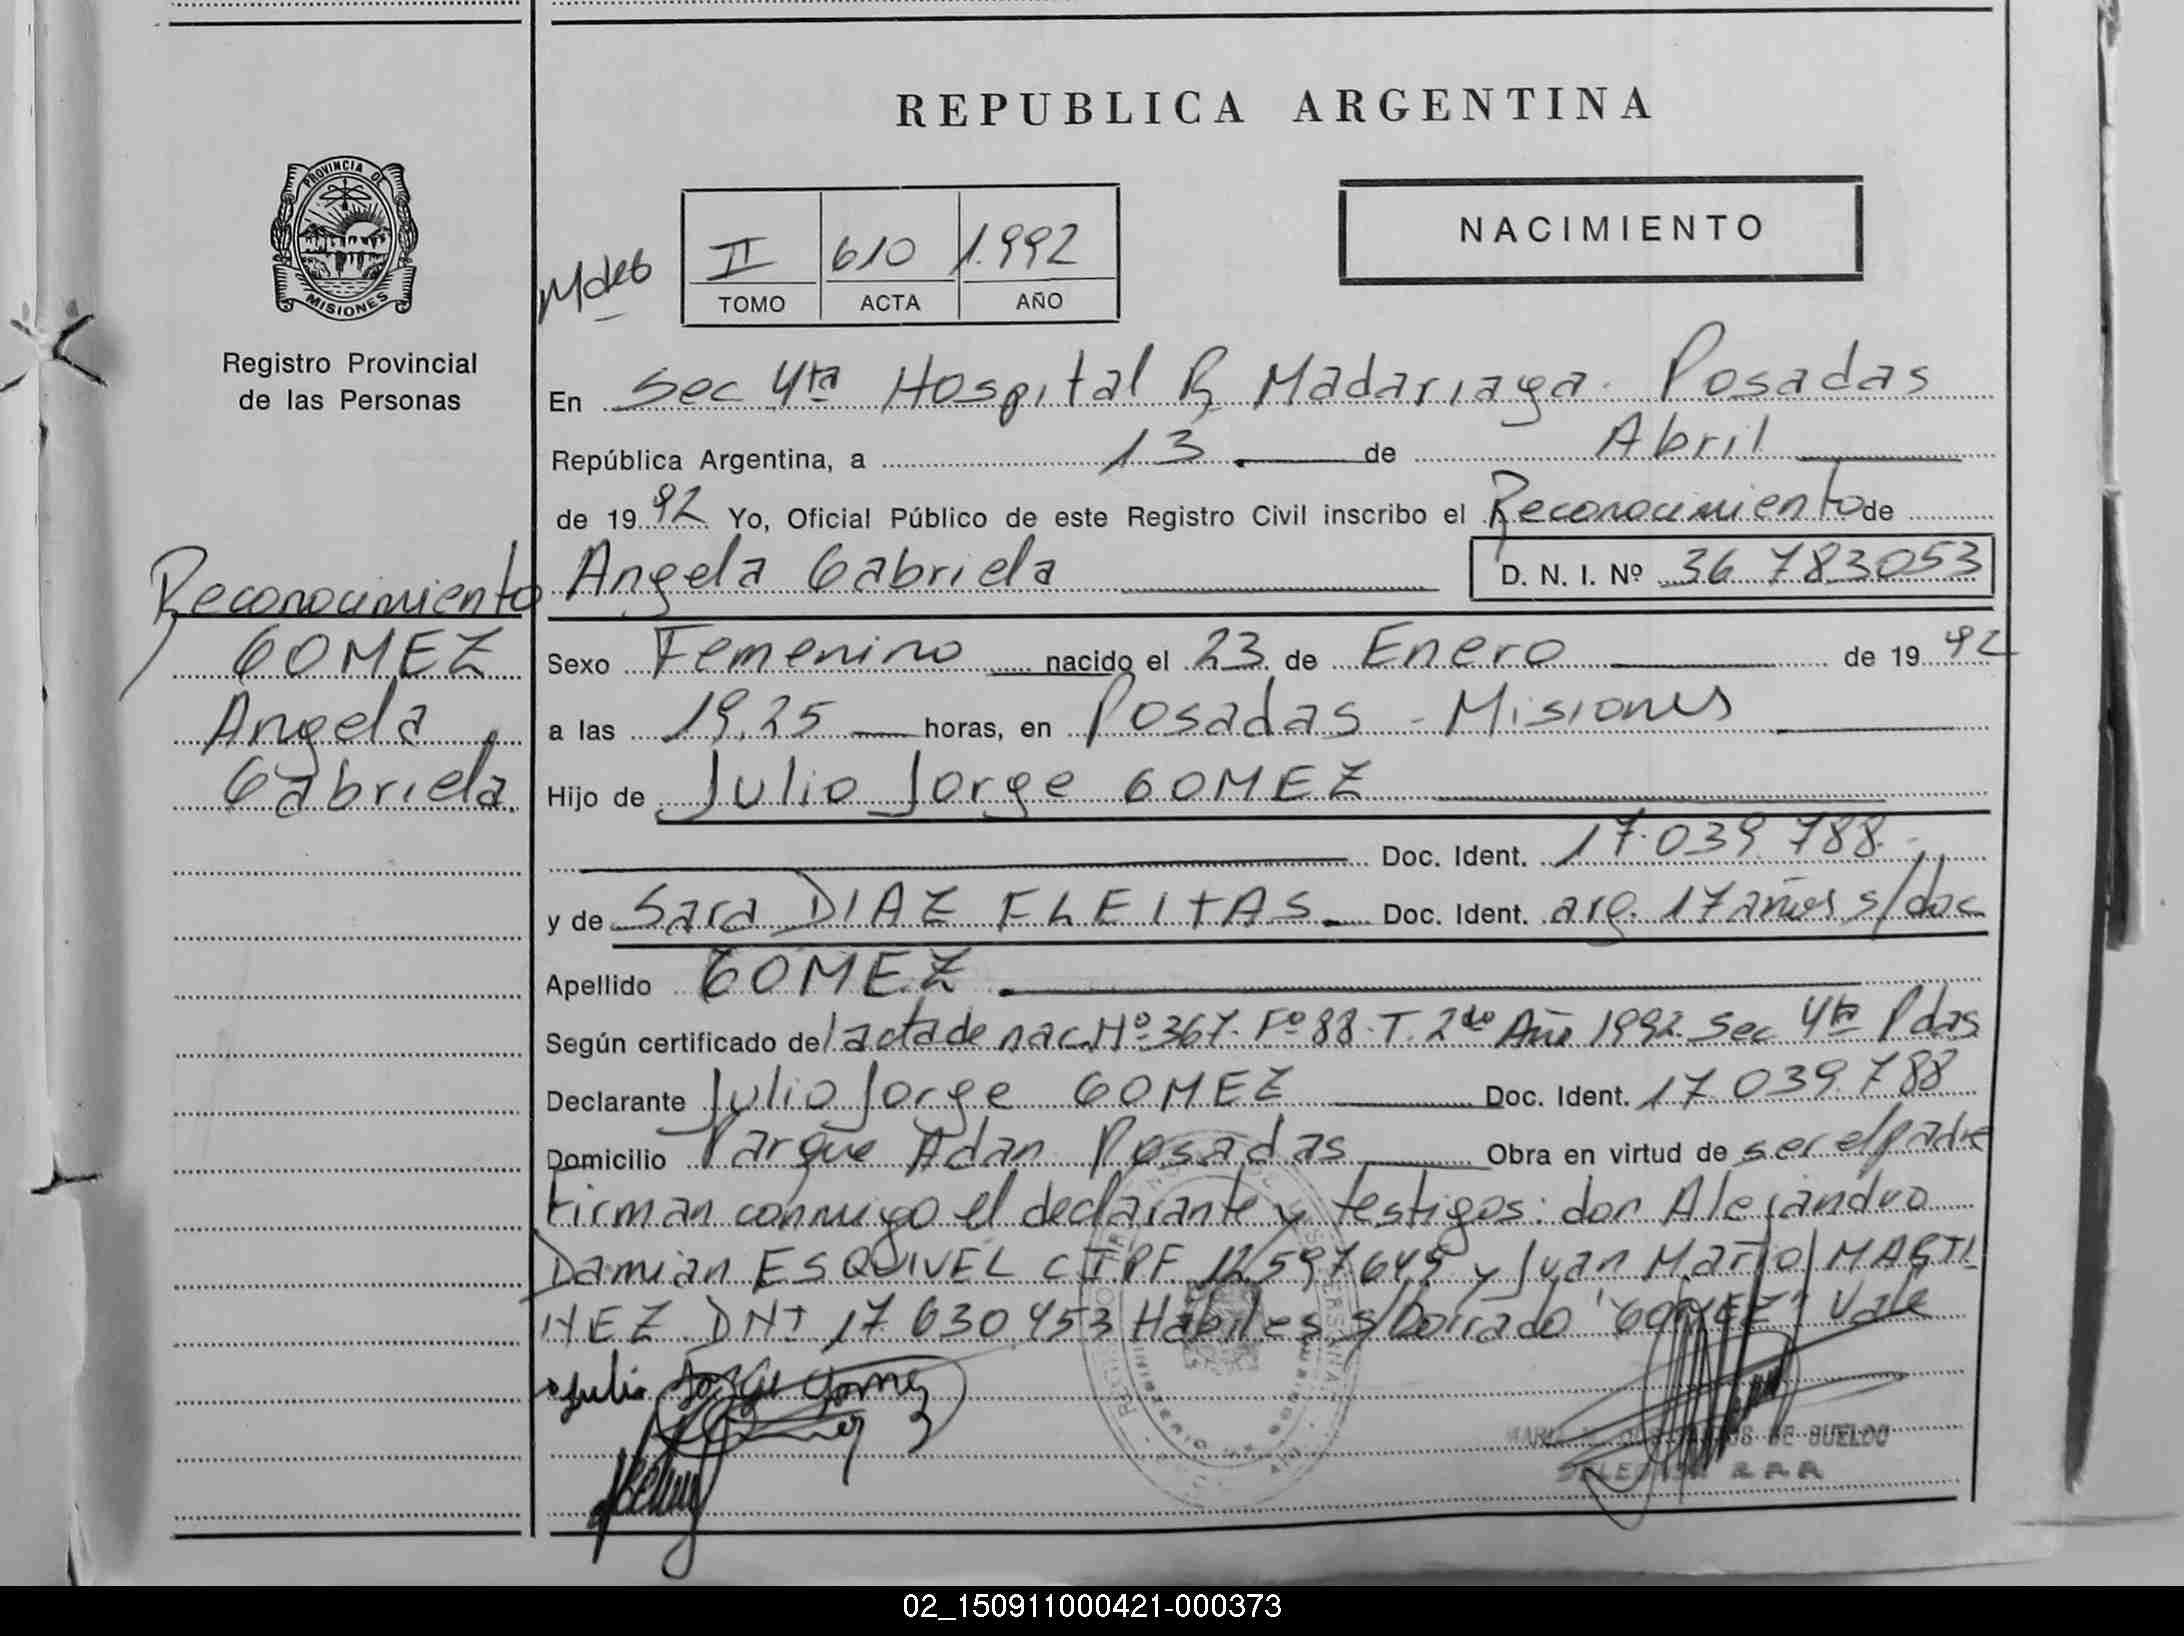 REPUBLICA ARGENTINA
NACIMIENTO
PROVINCIA DE
MISIONES
Registro Provincial
de las Personas
II 610 1.992
TOMO ACTA AÑO
En Sec 4ta Hospital R Madariaga. Posadas
República Argentina, a 13 de Abril
de 1992 Yo, Oficial Público de este Registro Civil inscribo el Reconocimiento de
Angela Gabriela D. N. I. Nº 36 783053
Reconocimiento
GOMEZ
Angela
Gabriela.
Sexo Femenino nacido el 23 de Enero de 1992
a las 19,25 horas, en Posadas - Misiones
Hijo de Julio Jorge GOMEZ
Doc. Ident. 17.039.788.
y de Sara DIAZ FLEITAS. Doc. Ident. arg. 17 años s/doc
Apellido GOMEZ.
Según certificado del acta de nac Nº 367. Fº 88. T. 2do Año 1992. Sec 4ta Pdas
Declarante Julio Jorge GOMEZ Doc. Ident. 17.039.788
Domicilio Parque Adan Posadas Obra en virtud de ser el padre
Firman conmigo el declarante y testigos: don Alejandro
Damian ESQUIVEL CIPF 12/597649 y Juan Mario MARTI
NEZ DNI 17 630 453 Habiles s/borrado "GOMEZ" Vale
Julio Jorge Gomez
DE BUELDO
02_150911000421-000373